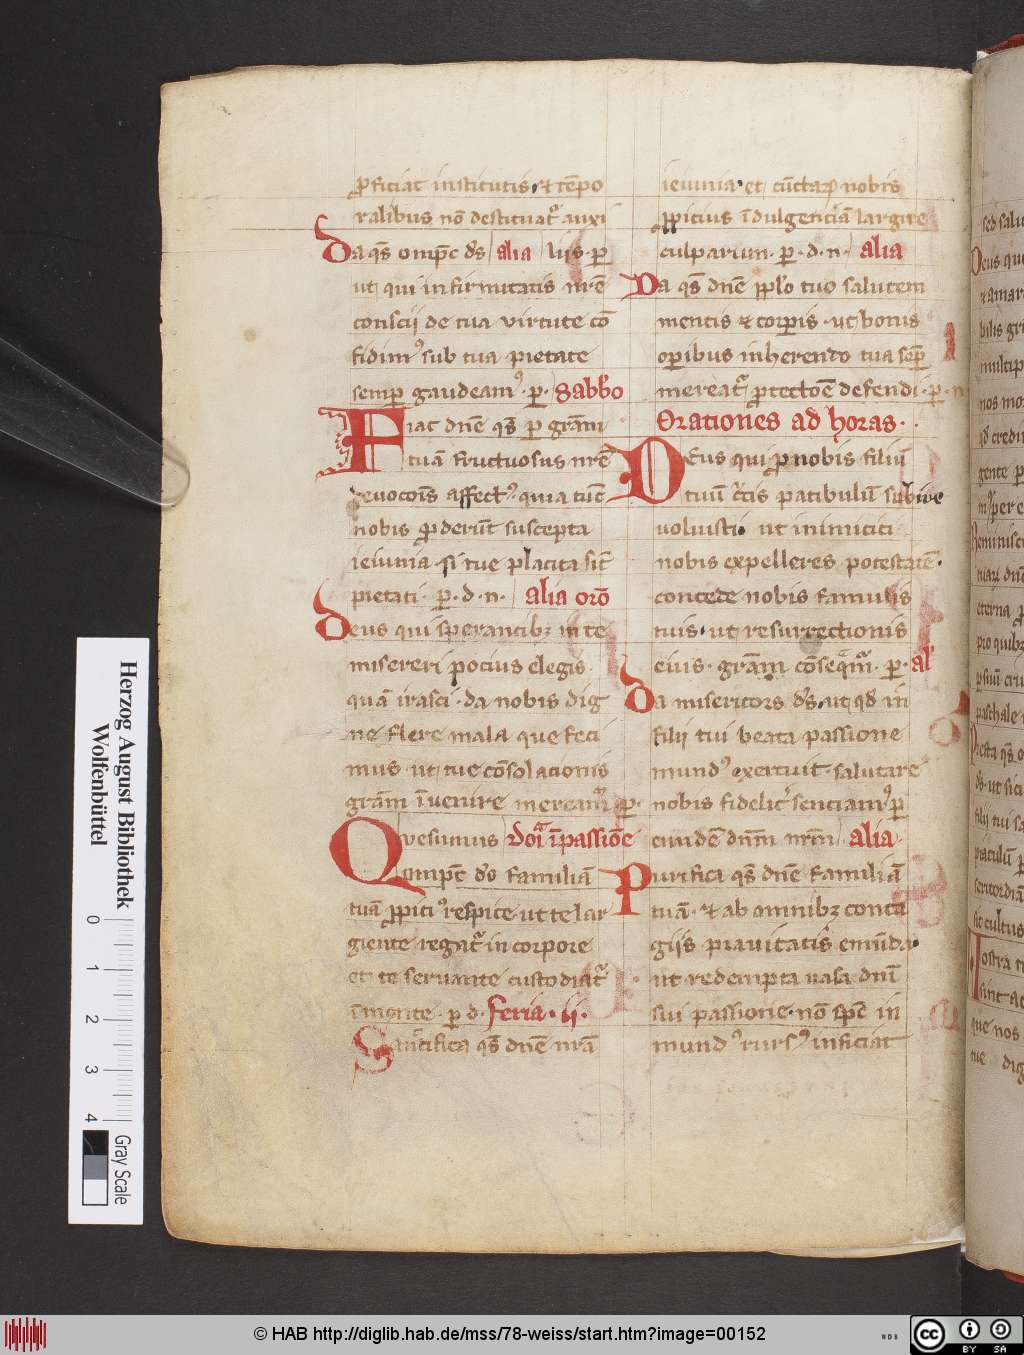 ꝓficiat institutis · et tēpo
ralibus nō destituat᷑ auxi
Da qs̄ omp̄c ds̄ alia liis · p̱
ut qui infirmitatis nr̄e
conscii de tua virtute cō
fidim᷒ sub tua pietate
semp̱ gaudeam᷒ · p̱ · Sabb̄o
Fiat dn̄e qs̄ p̱ grām
tuā fructuosus nr̄e
deuocōis affect᷒ · quia tūc
nobis ꝓderūt suscepta
ieiunia · si tue placita sīt
pietati · p̱ · d · n · alia orō
Deus qui sperantibꝫ in te
misereri pocius elegis
quā irasci · da nobis dig
ne flere mala que feci
mus · ut tue cōsolacionis
grām īuenire meream᷑ · p̱ ·
Qvesumus doī͛ ī passiōe
omp̄c ds̄ familiā
tuā ꝓpici᷒ respice · ut te lar
giente regat᷑ in corpore
et te seruante custodiat᷑
ī mente · p̱ d · feria · ii ·
Sanctifica qs̄ dn̄e nr̄a
ieiunia · et cūctaꝝ nobis
ꝓpicius īdulgenciā largire
culparum · p̱ · d · n · alia
Da qs̄ dn̄e pp̄lo tuo salutem
mentis et corp̱is · ut bonis
op̱ibus inherendo tua semp̱
mereat᷑ ꝓtectōe defendi · p̱ · n
Orationes ad horas ·
DEus qui ꝓ nobis filiū
tuū c͛cis patibulū subire
voluisti · ut inimici
nobis expelleres potestatē ·
concede nobis famulis
tuis · ut resurrectionis
eius · grām cōseq̄m᷑ · p̱ · al᷒
Da misericors ds̄ · ut qd̄ in
filij tui beata passione
mund᷒ exercuit · salutare
nobis fidelit͛ senciam᷒ p̱
eundē dn̄m nr̄m alia ·
Purifica qs̄ dn̄e familiā
tuā · et ab omnibꝫ conta
giis prauitatis emūda ·
ut redempta uasa dn̄i
sui passione · nō sp̄c in
mund᷒ rurs᷒ inficiat
Herzog August Bibliothek
Wolfenbüttel
0 1 2 3 4
Gray Scale
© HAB http://diglib.hab.de/mss/78-weiss/start.htm?image=00152
WDB
cc BY SA